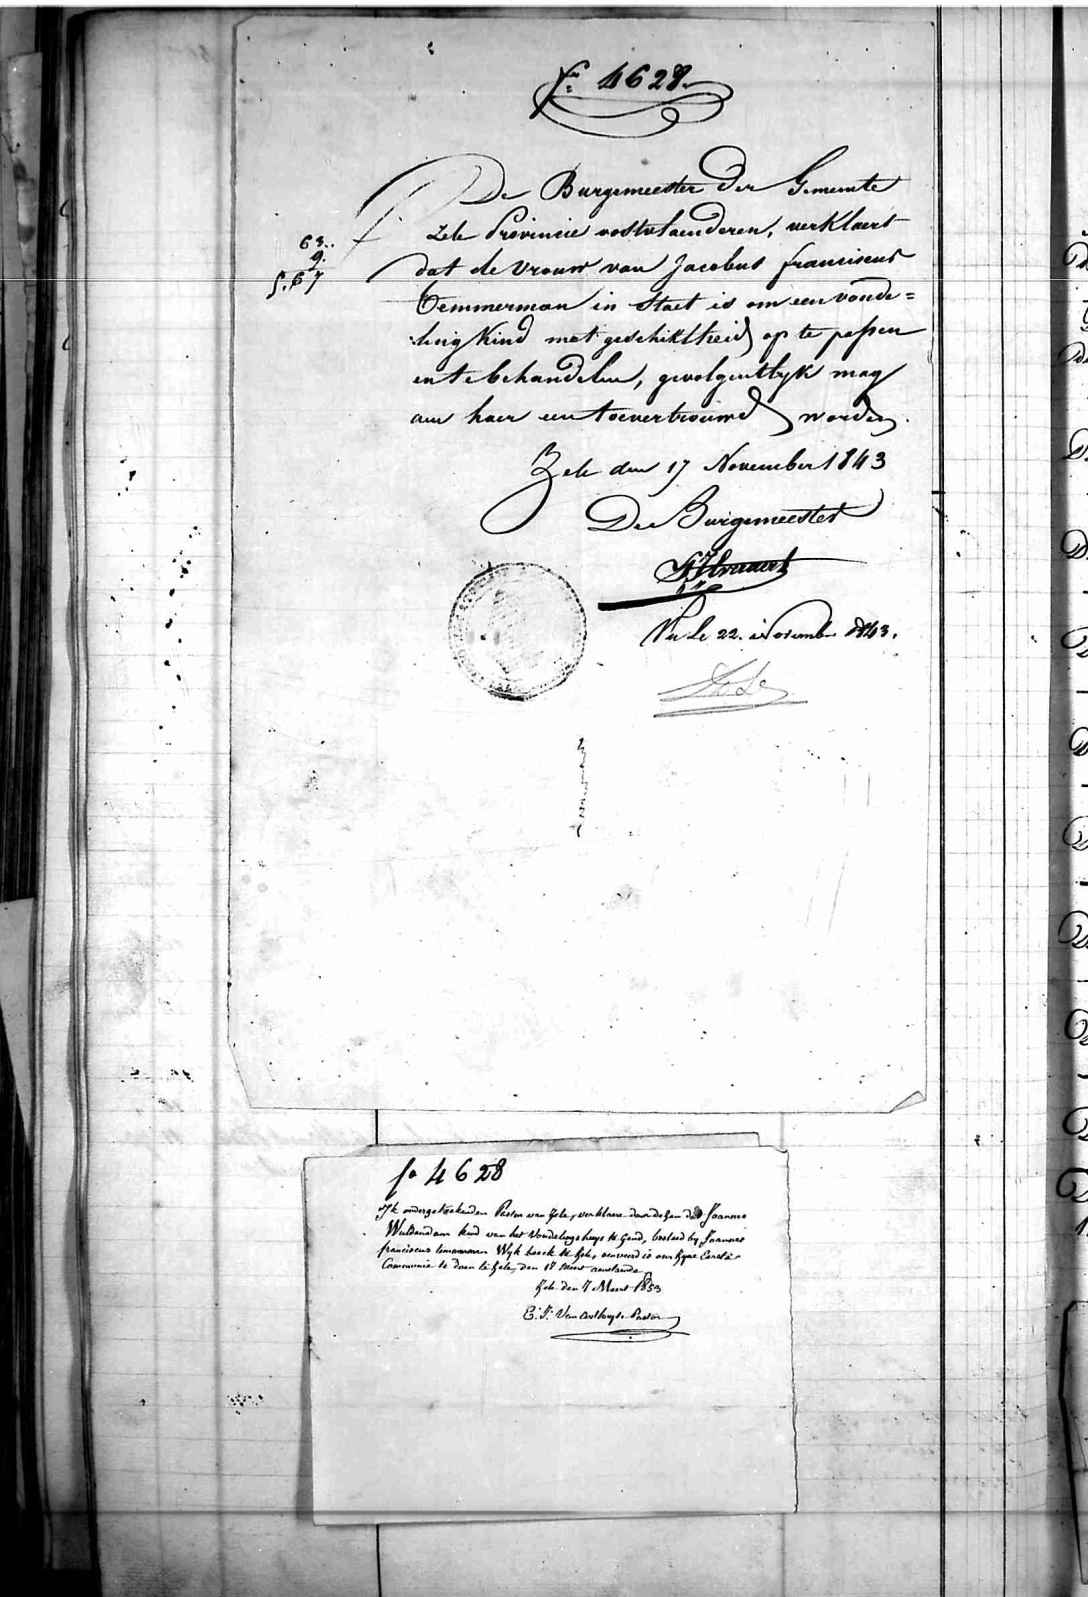 fo 4628.
De Burgemeester der Gemeente
Zele Provincie oostvlaenderen, verklaert
63..
9.
dat de vrouw van Jacobus franciscus
f. 67
Temmerman in Staet is om een vonde=
ling Kind met geschiktheid op te passen
en te behandelen, gevolgentlyk mag
aen haer een toevertrouwd worden.
Zele den 17 November 1843
De Burgemeester
Vu le 22. November 1843.
fo 4628
Ik ondergeteekenden Pastor van Zele, verklaere door dezen dat Joannes
kind van het Vondelingshuys te Gend, besteed by Joannes
franciscus temmerman Wyk hoek te Zele, aenveerd is om zyne Eerste
Communie te doen te Zele, den 17 Meert aenstaende
Zele den 7 Meert 1853
Pastor